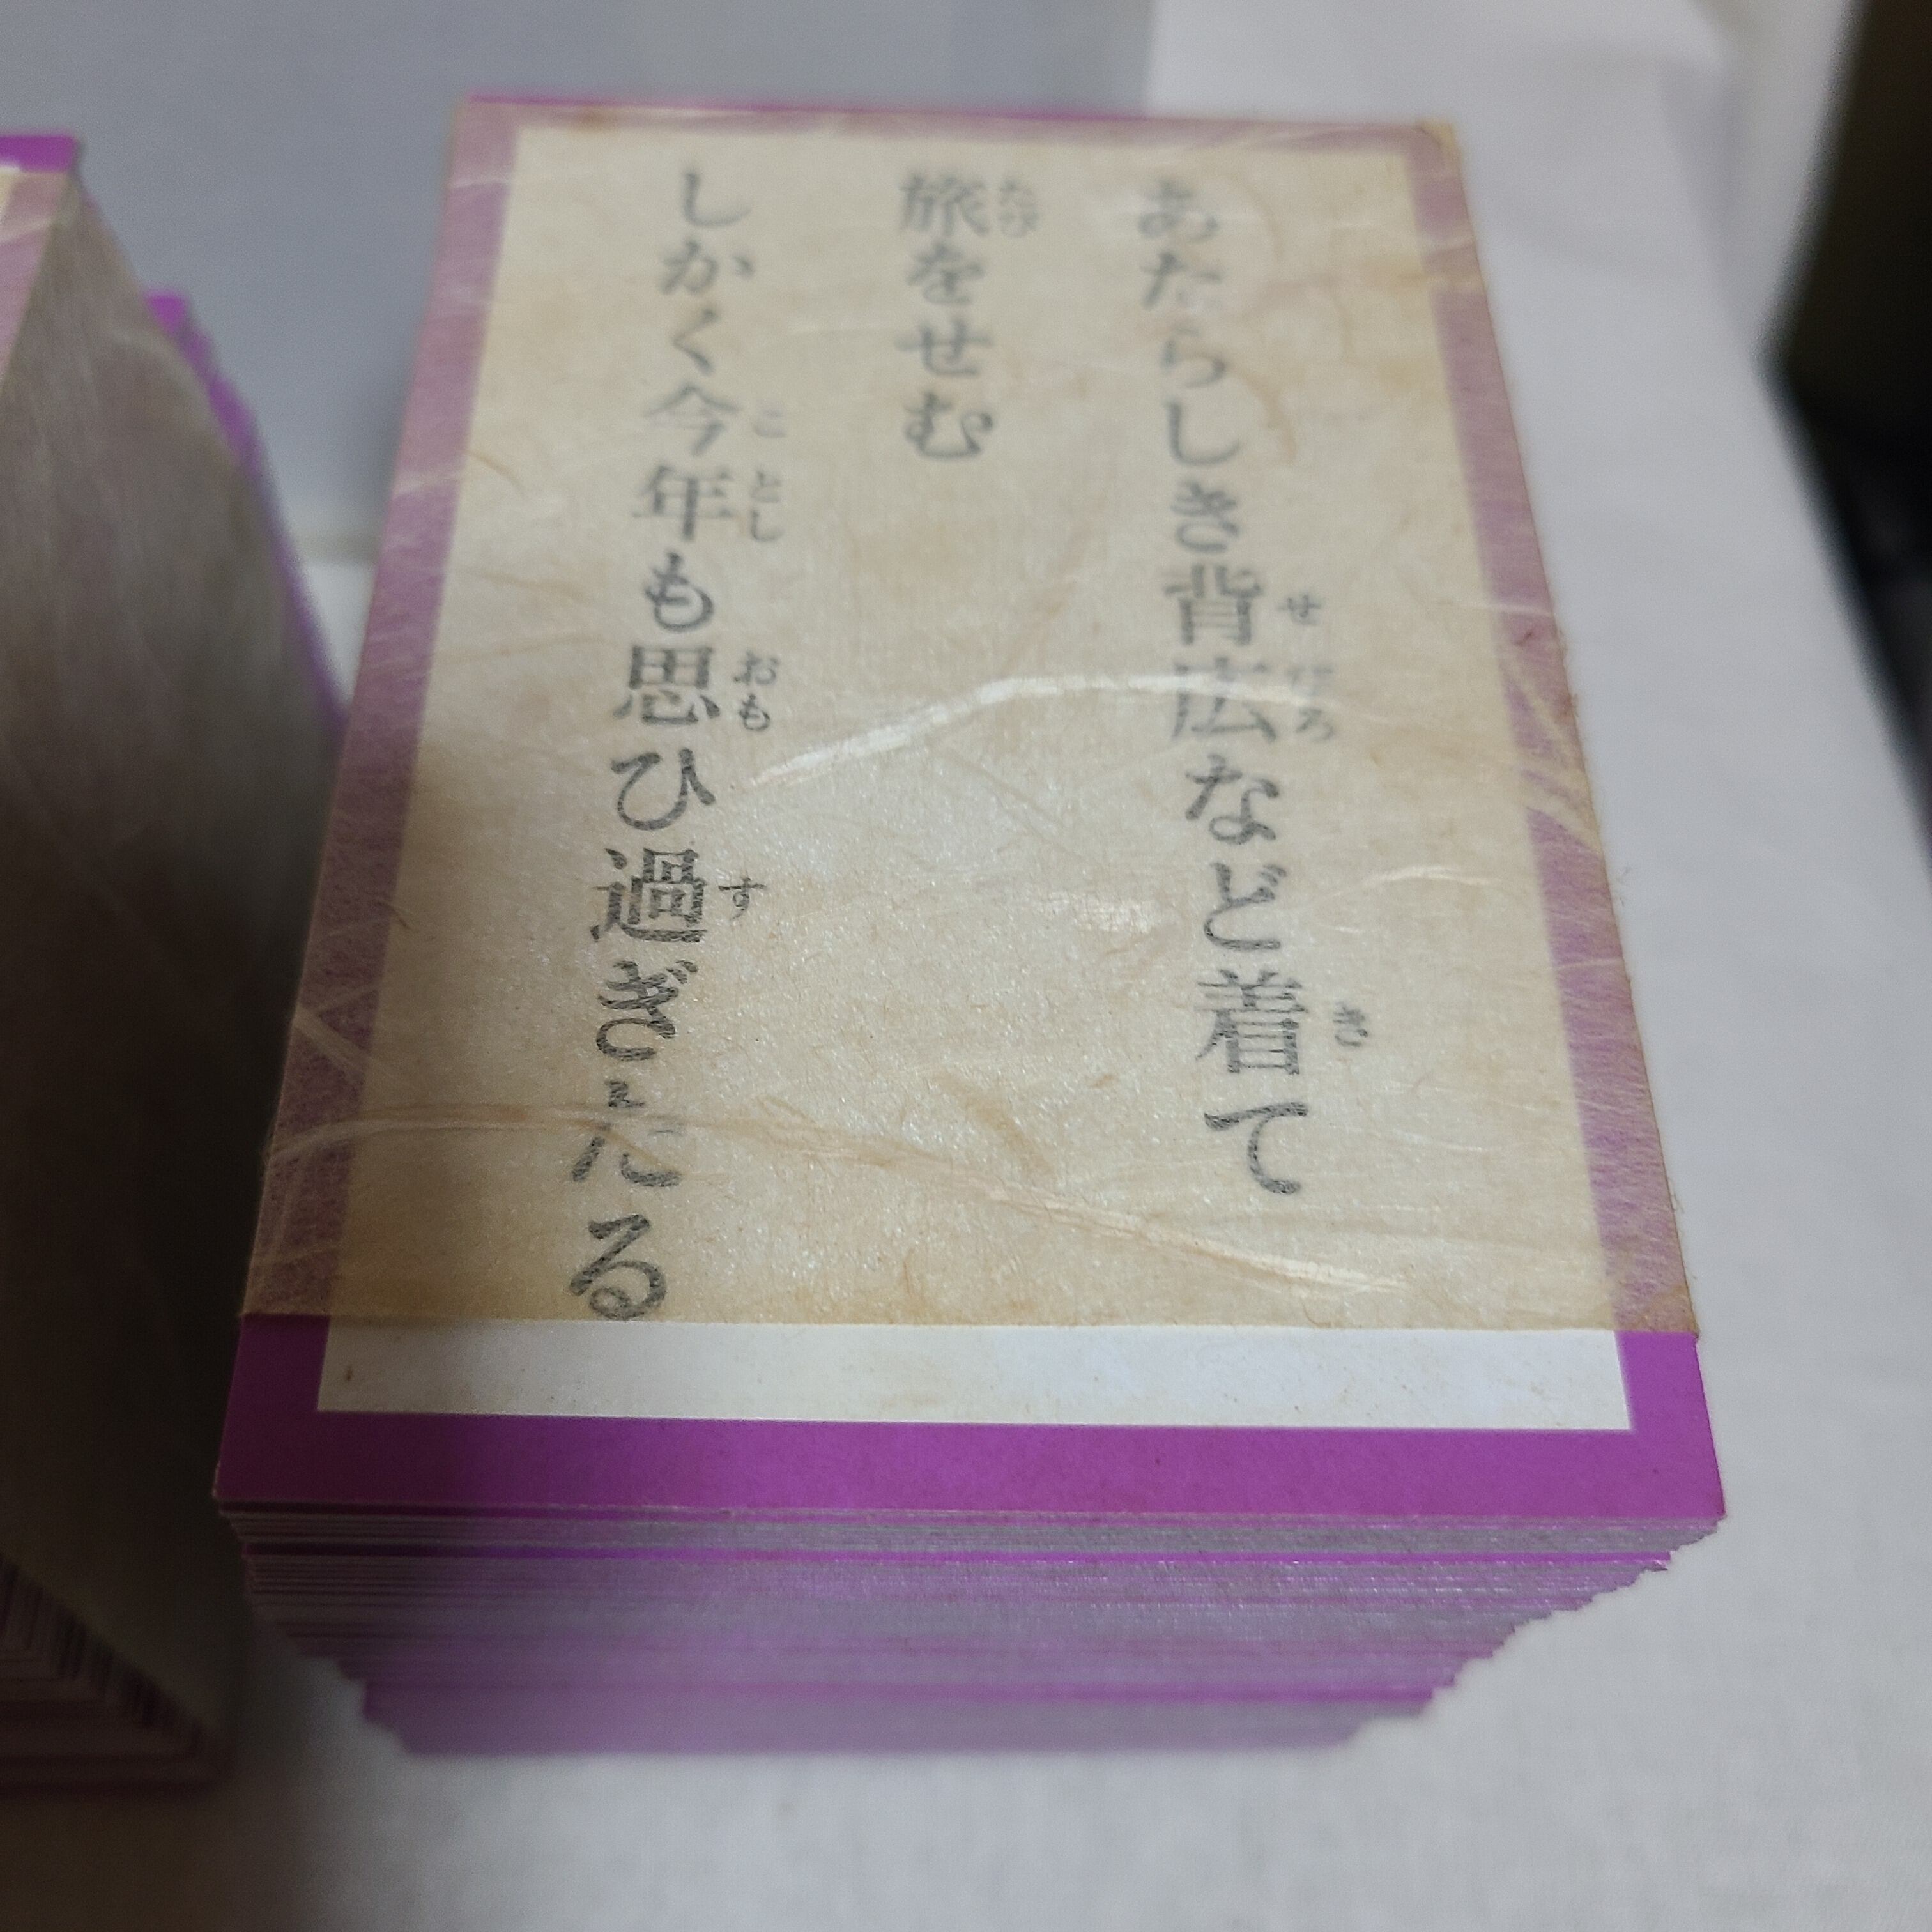 あたらしき背広など着て
旅をせむ
しかく今年も思ひ過ぎたる